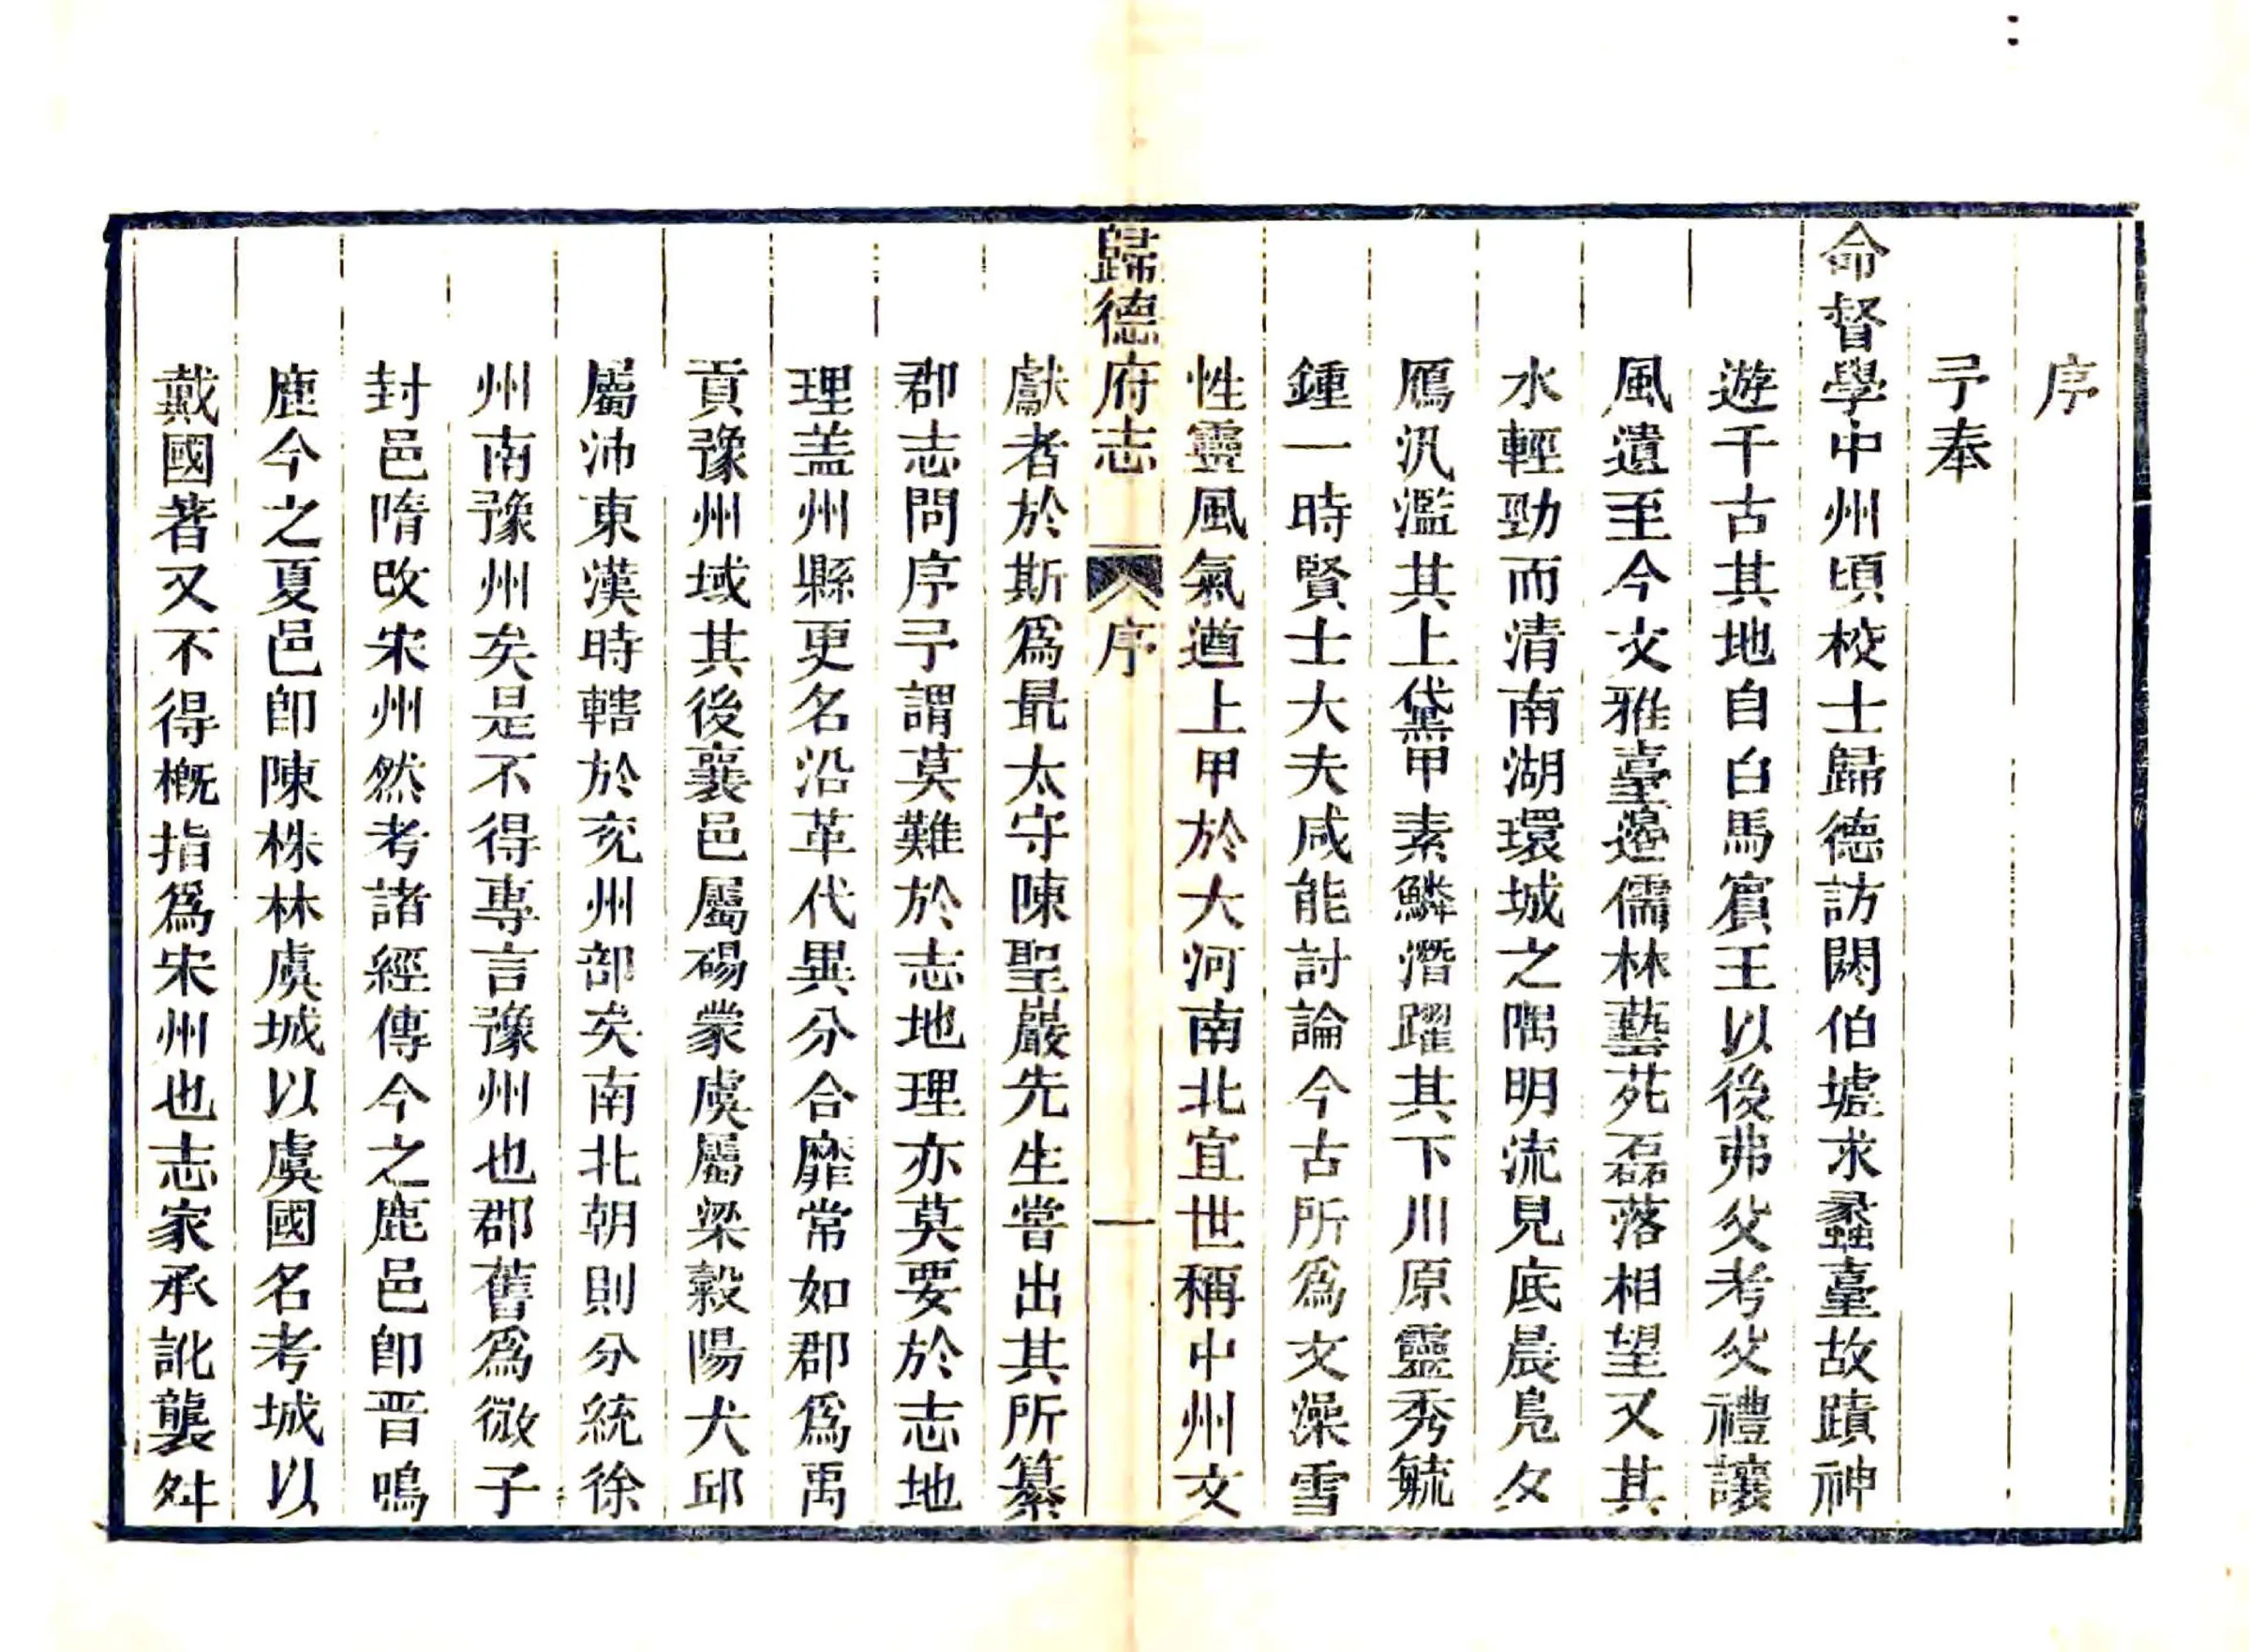 序
予奉
命督學中州頃校士歸德訪閼伯墟求蠡臺故蹟神
遊千古其地自白馬賔王以後弗父考父禮讓
風遺至今文雅臺邊儒林藝苑磊落相望又其
水輕勁而清南湖環城之隅明流見底晨鳬夕
鴈汎濫其上黛甲素鱗潛躍其下川原靈秀毓
鍾一時賢士大夫咸能討論今古所爲文澡雪
性靈風氣遒上甲於大河南北宜世稱中州文
歸德府志 序 一
獻者於斯爲最太守陳聖巖先生嘗出其所纂
郡志問序予謂莫難於志地理亦莫要於志地
理盖州縣更名沿革代異分合靡常如郡爲禹
貢豫州域其後襄邑屬碭蒙虞屬梁穀陽犬邱
屬沛東漢時轄於兖州部矣南北朝則分統徐
州南豫州矣是不得專言豫州也郡舊爲微子
封邑隋改宋州然考諸經傳今之鹿邑卽晋鳴
鹿今之夏邑卽陳株林虞城以虞國名考城以
戴國著又不得槪指爲宋州也志家承訛襲舛